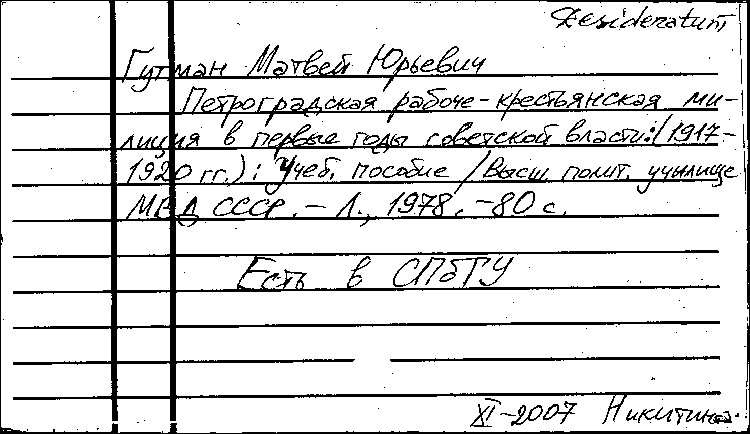 Desideratum
Гутман Матвей Юрьевич
Петроградская рабоче-крестьянская ми-
лиция в первые годы советской власти:(1917-
1920 гг.): Учеб. пособие /Высш. полит. училище
МВД СССР. - Л., 1978. - 80 с.
Есть в СПбГУ
XI-2007 Никитина